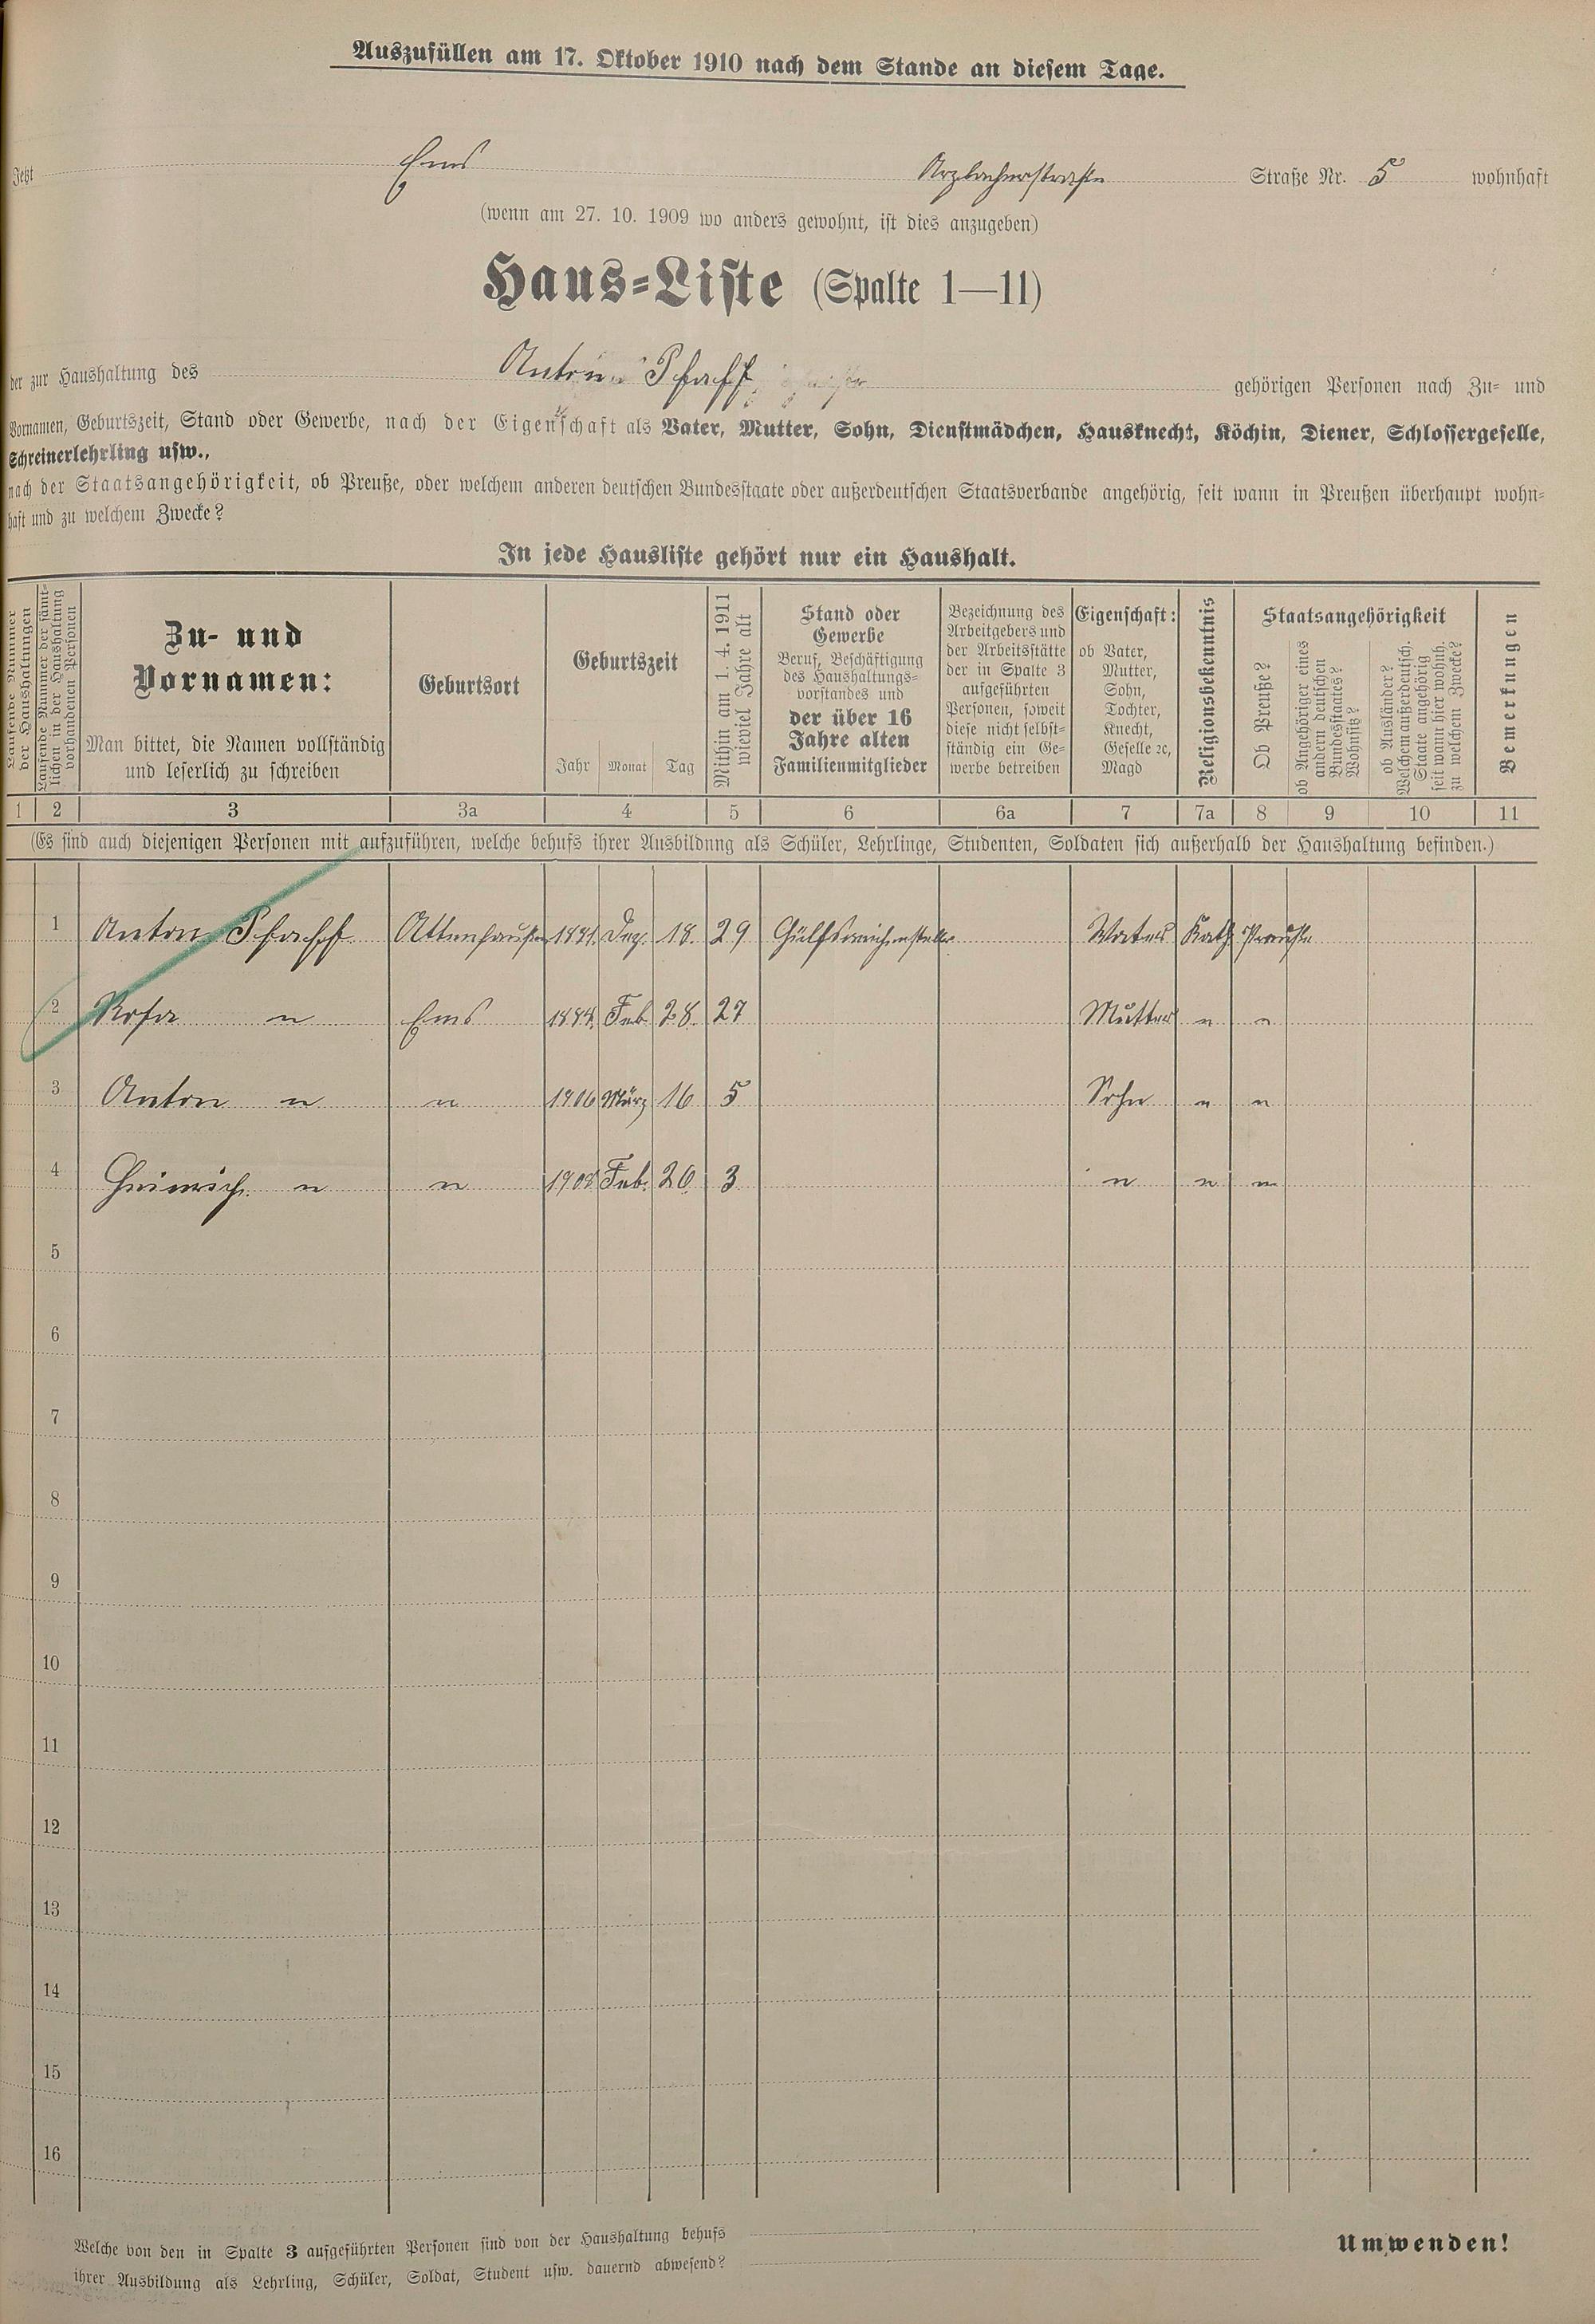 Auszufüllen am 17. Oktober 1910 nach dem Stande an diesem Tage.
Jetzt Ems Arzbacherstraße Straße Nr. 5 wohnhaft
(wenn am 27. 10. 1909 wo anders gewohnt, ist dies anzugeben)
Haus-Liste (Spalte 1—11)
der zur Haushaltung des Anton Pfaff gehörigen Personen nach Zu- und
Vornamen, Geburtszeit, Stand oder Gewerbe, nach der Eigenschaft als Vater, Mutter, Sohn, Dienstmädchen, Hausknecht, Köchin, Diener, Schlossergeselle,
Schreinerlehrling usw.,
nach der Staatsangehörigkeit, ob Preuße, oder welchem anderen deutschen Bundesstaate oder außerdeutschen Staatsverbande angehörig, seit wann in Preußen überhaupt wohn-
haft und zu welchem Zwecke?
In jede Hausliste gehört nur ein Haushalt.
Laufende Nummer
der Haushaltungen
Laufende Nummer der sämt-
lichen in der Haushaltung
vorhandenen Personen
Zu- und
Vornamen:
Man bittet, die Namen vollständig
und leserlich zu schreiben
Geburtsort
Geburtszeit
Jahr Monat Tag
Mithin am 1. 4. 1911
wieviel Jahre alt
Stand oder
Gewerbe
Beruf, Beschäftigung
des Haushaltungs-
vorstandes und
der über 16
Jahre alten
Familienmitglieder
Bezeichnung des
Arbeitgebers und
der Arbeitsstätte
der in Spalte 3
aufgeführten
Personen, soweit
diese nicht selbst-
ständig ein Ge-
werbe betreiben
Eigenschaft:
ob Vater,
Mutter,
Sohn,
Tochter,
Knecht,
Geselle ꝛc,
Magd
Religionsbekenntnis
Staatsangehörigkeit
Ob Preuße?
ob Angehöriger eines
andern deutschen
Bundesstaates?
Wohnsitz?
ob Ausländer?
Welchem außerdeutsch.
Staate angehörig
seit wann hier wohnh.
zu welchem Zwecke?
Bemerkungen
1 2 3 3a 4 5 6 6a 7 7a 8 9 10 11
(Es sind auch diejenigen Personen mit aufzuführen, welche behufs ihrer Ausbildung als Schüler, Lehrlinge, Studenten, Soldaten sich außerhalb der Haushaltung befinden.)
1 Anton Pfaff Attenhausen 1881. Dez. 18. 29 Hülfsweichensteller Vater Kath Preuße
2 Rosa " Ems 1884. Feb. 28. 27 Mutter " "
3 Anton " " 1906 März 16 5 Sohn " "
4 Heinrich " " 1908. Feb. 20. 3 " " "
5
6
7
8
9
10
11
12
13
14
15
16
Welche von den in Spalte 3 aufgeführten Personen sind von der Haushaltung behufs
ihrer Ausbildung als Lehrling, Schüler, Soldat, Student usw. dauernd abwesend?
Umwenden!